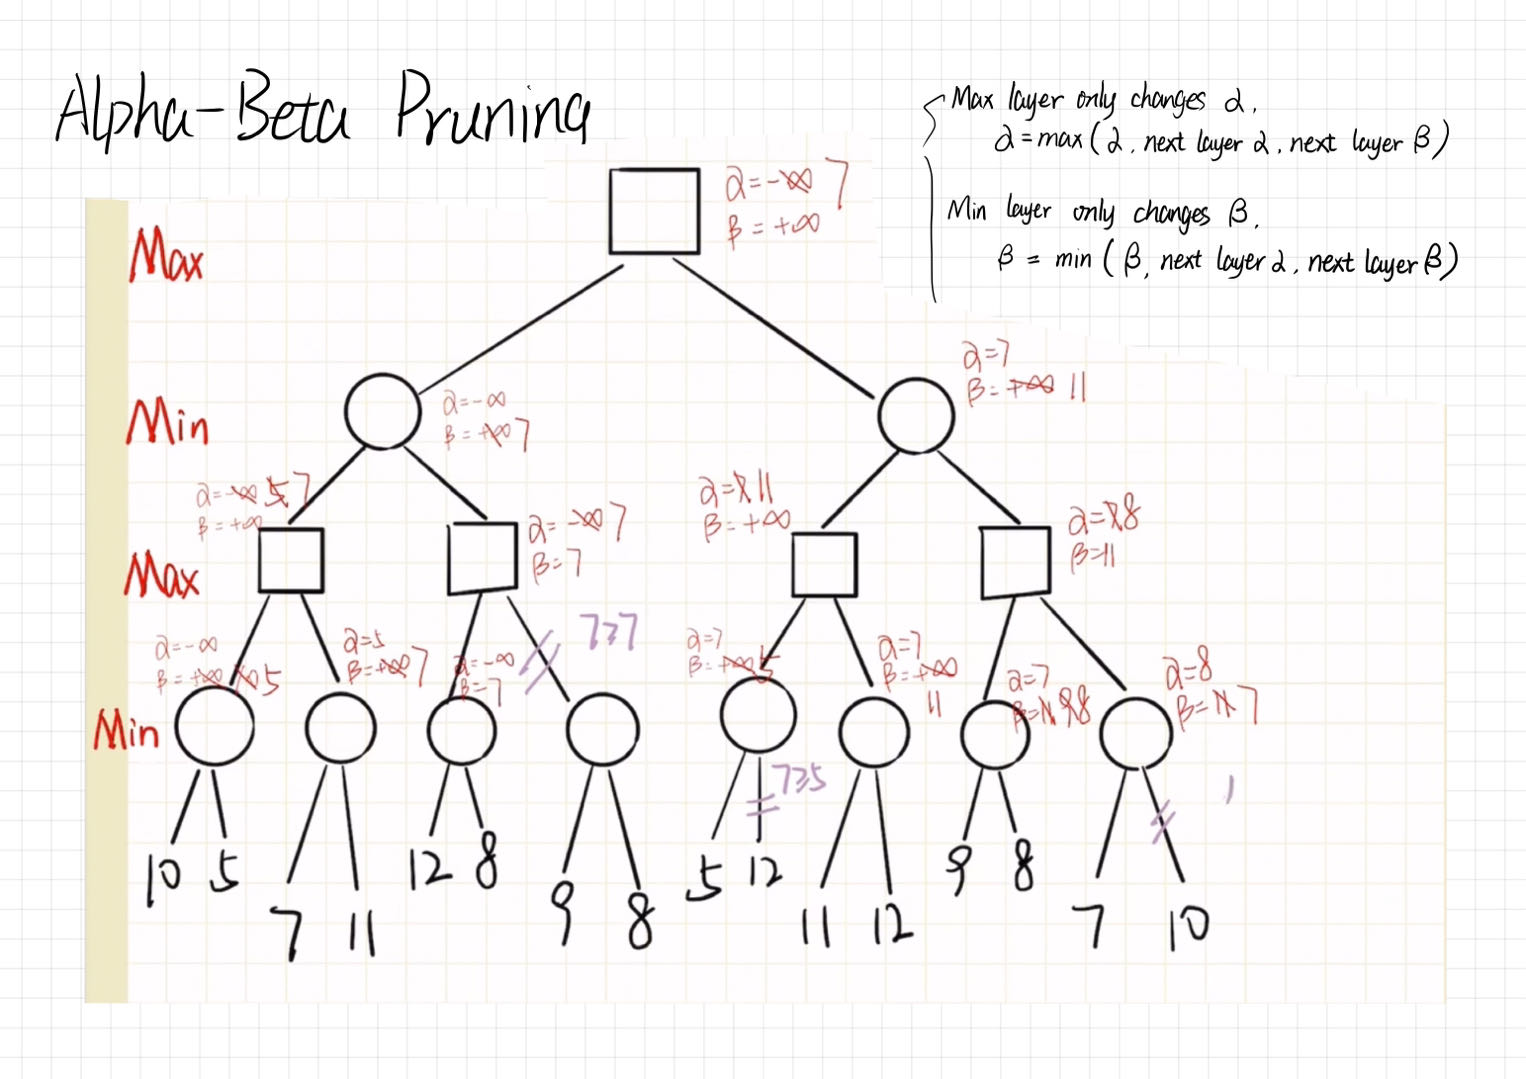 Alpha-Beta Pruning
Max layer only changes α,
α=max(α, next layer α, next layer β)
Min layer only changes β,
β = min(β, next layer α, next layer β)
α=-∞ 7
β=+∞
Max
α=7
β=+∞ 11
Min
α=-∞
β=+∞ 7
α=-∞ 5 7
β=+∞
α=-∞ 7
β=7
α=7 11
β=+∞
α=7 8
β=11
Max
α=-∞
β=+∞ 10 5
α=5
β=+∞ 7
α=-∞
β=7
7≥7
α=7
β=+∞ 5
α=7
β=+∞
11
α=7
β=11 9 8
α=8
β=11 7
Min
7≥5
10 5 12 8 5 12 9 8
7 11 9 8 11 12 7 10